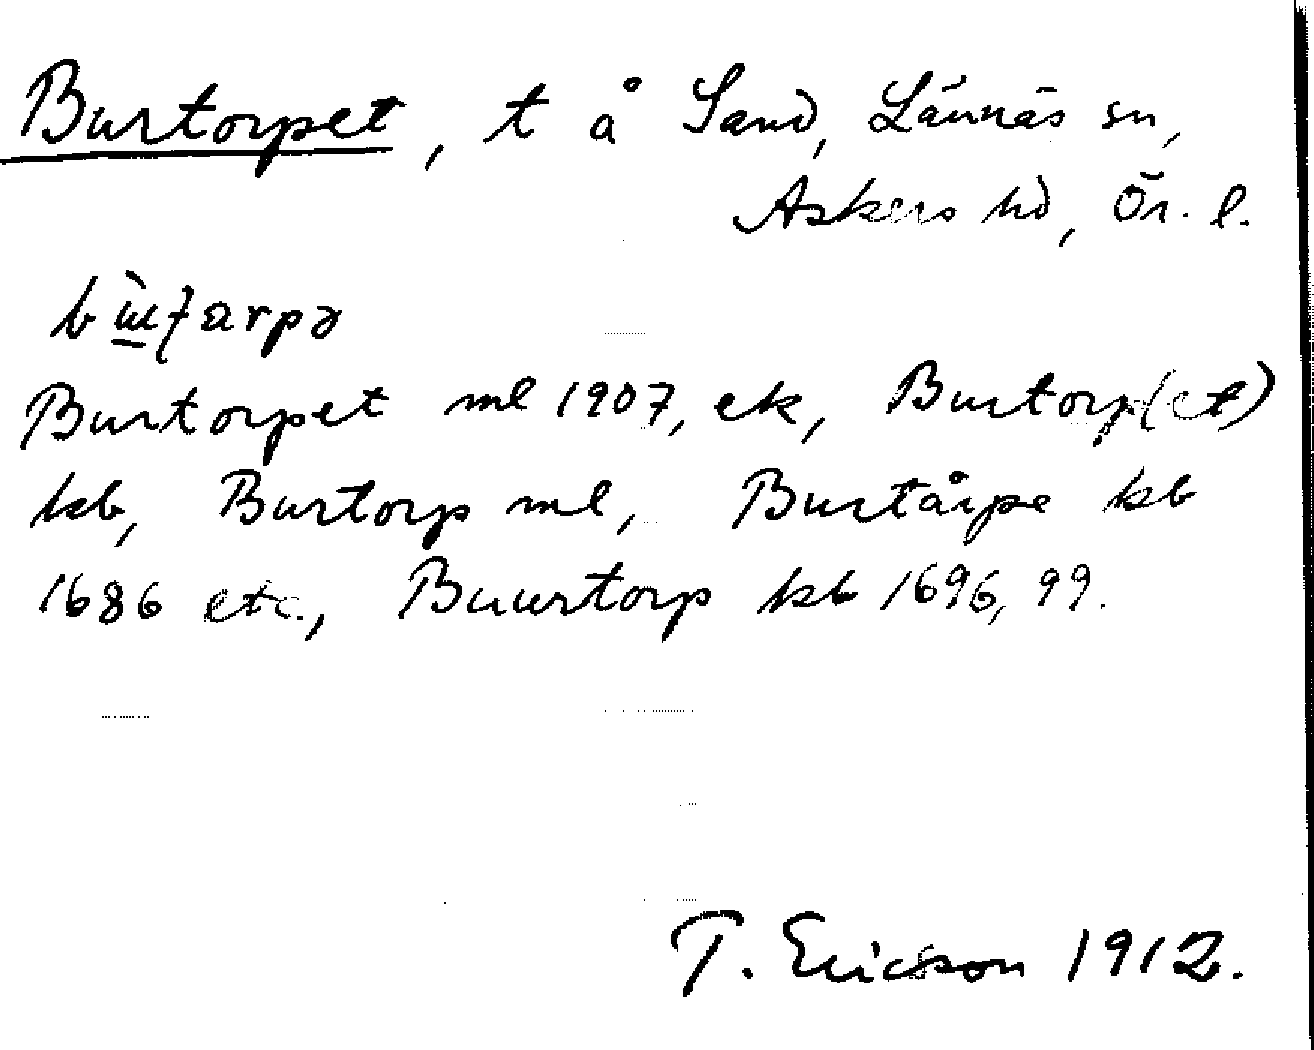 Burtorpet, t å Sand, Lännäs sn,
Askers hd, Ör. l.
Burtorpet ml 1907, ek, Burtorp(et)
kb, Burtorp ml, Burtårpe kb
1686 etc., Buurtorp kb 1696, 99.
T. Ericson 1912.